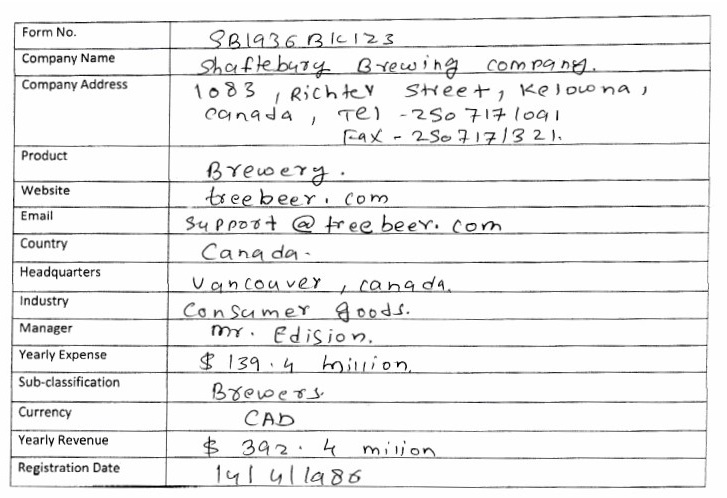 Form No. SB1936BK123
Company Name Shaftebury Brewing company.
Company Address 1083, Richter Street, Kelowna,
canada, Tel - 250 717 1091
Fax - 250 717 1321.
Product Brewery.
Website treebeer.com
Email support@treebeer.com
Country Canada.
Headquarters Vancouver, canada.
Industry Consumer goods.
Manager Mr. Edision.
Yearly Expense $ 139.4 million.
Sub-classification Brewers.
Currency CAD
Yearly Revenue $ 392.4 milion
Registration Date 14/4/1986